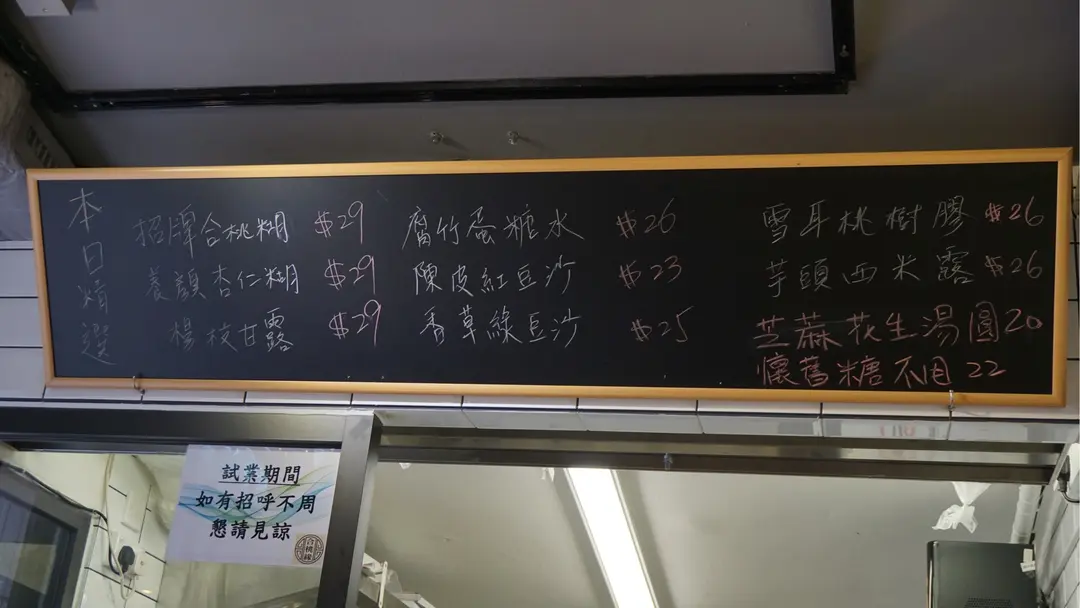 本日精選
招牌合桃糊 $29
養顏杏仁糊 $29
楊枝甘露 $29
腐竹蛋糖水 $26
陳皮紅豆沙 $23
香草綠豆沙 $25
雪耳桃樹膠 $26
芋頭西米露 $26
芝蔴花生湯圓 20
懷舊糖不甩 22
試業期間
如有招呼不周
懇請見諒